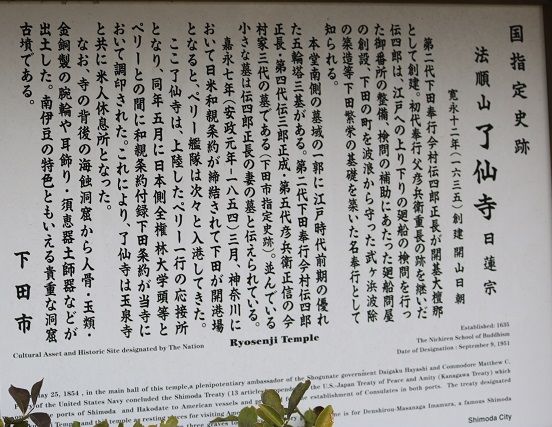 国指定史跡
法順山 了仙寺 日蓮宗
寛永十二年（一六三五）創建 開山日朝
第二代下田奉行今村伝四郎正長が開基大檀那
として創建。初代奉行父彦兵衛重長の跡を継いだ
伝四郎は、江戸への上り下りの廻船の検問を行っ
た御番所の整備、検問の補助にあたった廻船問屋
の創設、下田の町を波浪から守った武ヶ浜波除
の築造等下田繁栄の基礎を築いた名奉行として
知られる。
本堂南側の墓域の一郭に江戸時代前期の優れ
た五輪塔三基がある。第二代下田奉行今村伝四郎
正長・第四代伝三郎正成・第五代彦兵衛正信の今
村家三代の墓である（下田市指定史跡）。並んでいる
小さな墓は伝四郎正長の妻の墓と伝えられている。
嘉永七年（安政元年一八五四）三月、神奈川に
おいて日米和親条約が締結されて下田が開港場
となると、ペリー艦隊は次々と入港してきた。
ここ了仙寺は、上陸したペリー一行の応接所
となり、同年五月に日本側全権林大学頭等と
ペリーとの間に和親条約付録下田条約が当寺に
おいて調印された。これにより、了仙寺は玉泉寺
と共に米人休息所となった。
なお、寺の背後の海蝕洞窟から人骨・玉類・
金銅製の腕輪や耳飾り・須恵器土師器などが
出土した。南伊豆の特色ともいえる貴重な洞窟
古墳である。
下田市
Ryosenji Temple
Cultural Asset and Historic Site designated by The Nation
Established: 1635
The Nichiren School of Buddhism
Date of Designation : September 9, 1951
May 25, 1854 , in the main hall of this temple,a plenipotentiary ambassador of the Shogunate government Daigaku Hayashi and Commodore Matthew C.
of the United States Navy concluded the Shimoda Treaty (13 articles appended to the U.S.-Japan Treaty of Peace and Amity (Kanagawa Treaty) which
ports of Shimoda and Hakodate to American vessels and establishment of Consulates in both ports. The treaty designated
Temple as resting places for visiting is for Denshirou-Masanaga Imamura, a famous Shimoda
three graves
Shimoda City